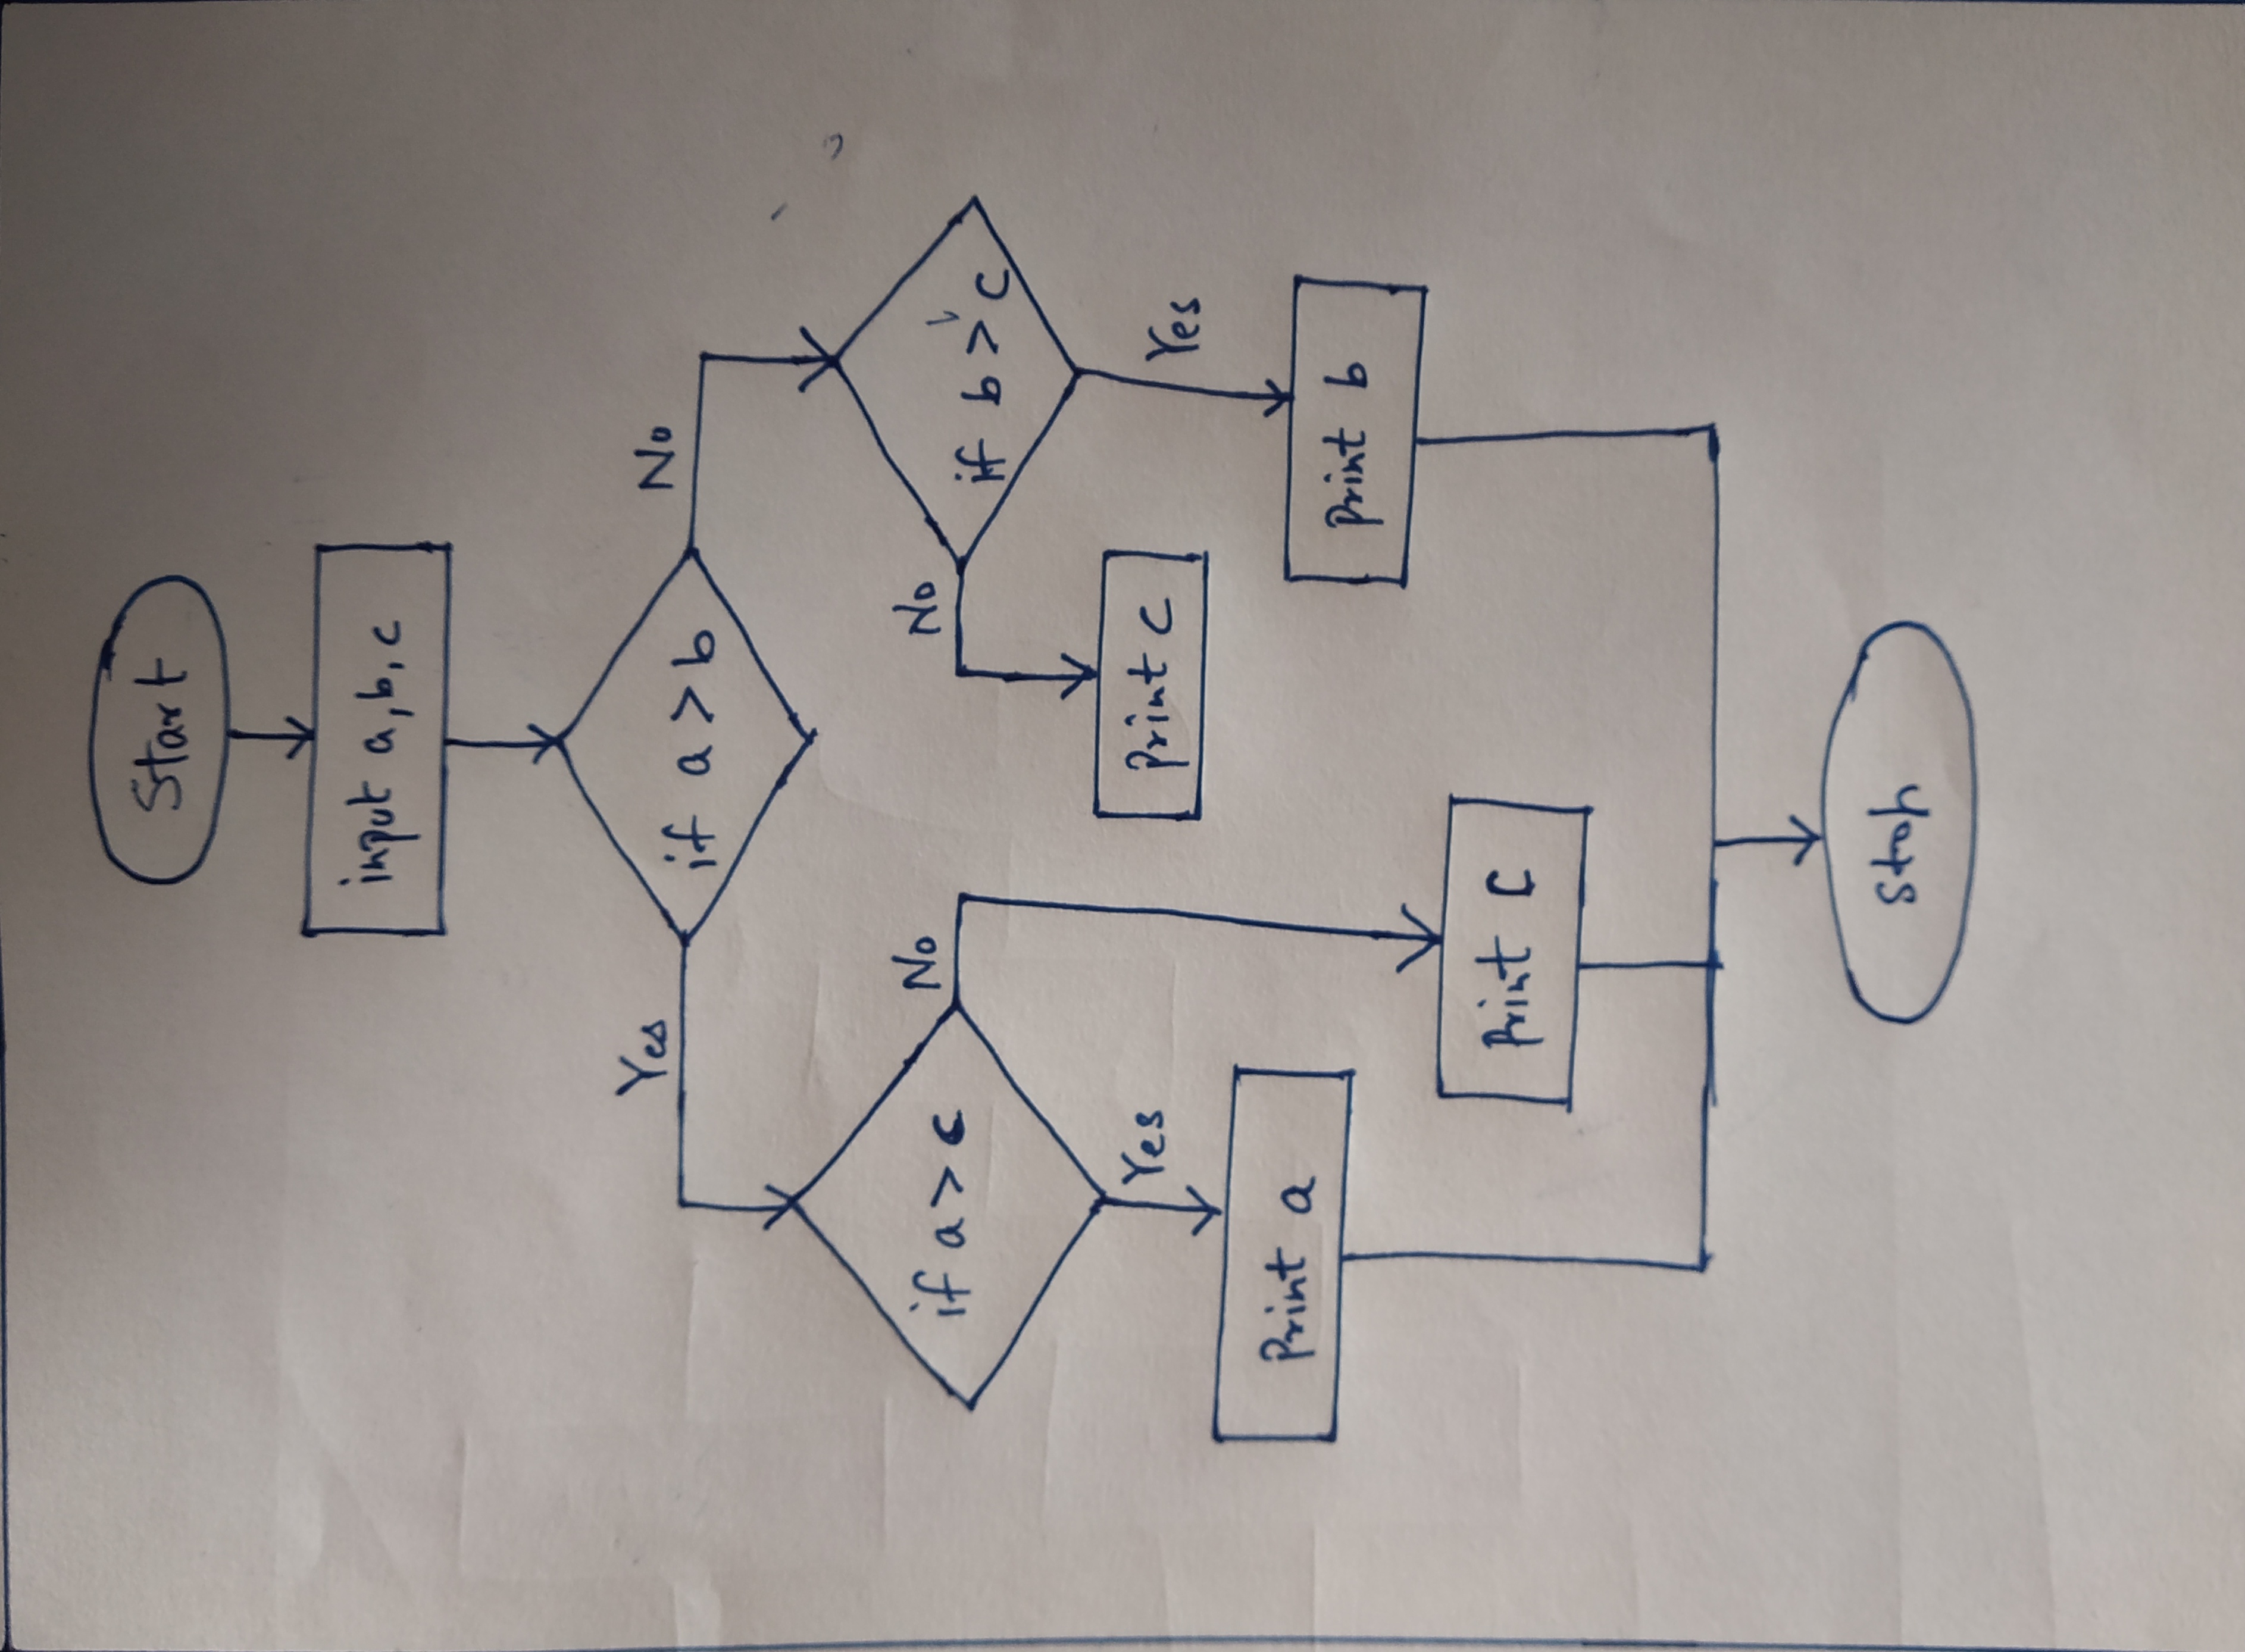 Start
input a, b, c
if a > b
Yes
No
if a > c
No
Yes
Print a
Print C
if b > c
No
Print c
Yes
Print b
Stop